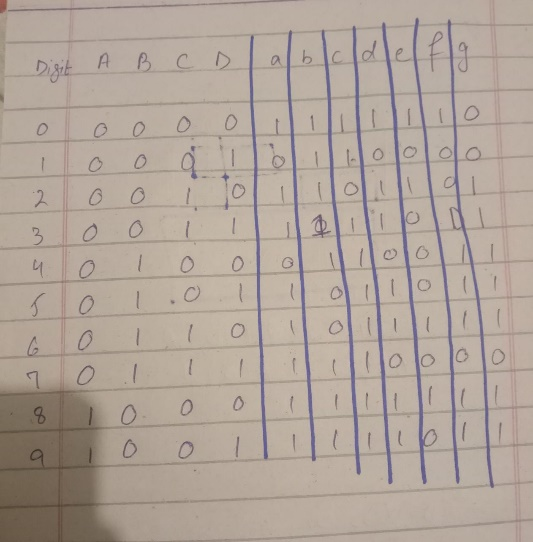 Digit A B C D a b c d e f g
0 0 0 0 0 1 1 1 1 1 1 0
1 0 0 0 1 0 1 1 0 0 0 0
2 0 0 1 0 1 1 0 1 1 0 1
3 0 0 1 1 1 1 1 1 0 0 1
4 0 1 0 0 0 1 1 0 0 1 1
5 0 1 0 1 1 0 1 1 0 1 1
6 0 1 1 0 1 0 1 1 1 1 1
7 0 1 1 1 1 1 1 0 0 0 0
8 1 0 0 0 1 1 1 1 1 1 1
9 1 0 0 1 1 1 1 1 0 1 1